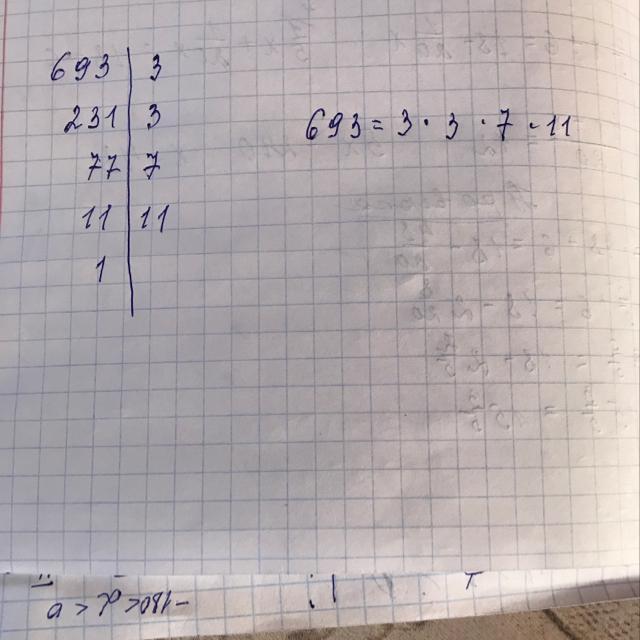 693 | 3
231 | 3
77 | 7
11 | 11
1 |
693 = 3 · 3 · 7 · 11